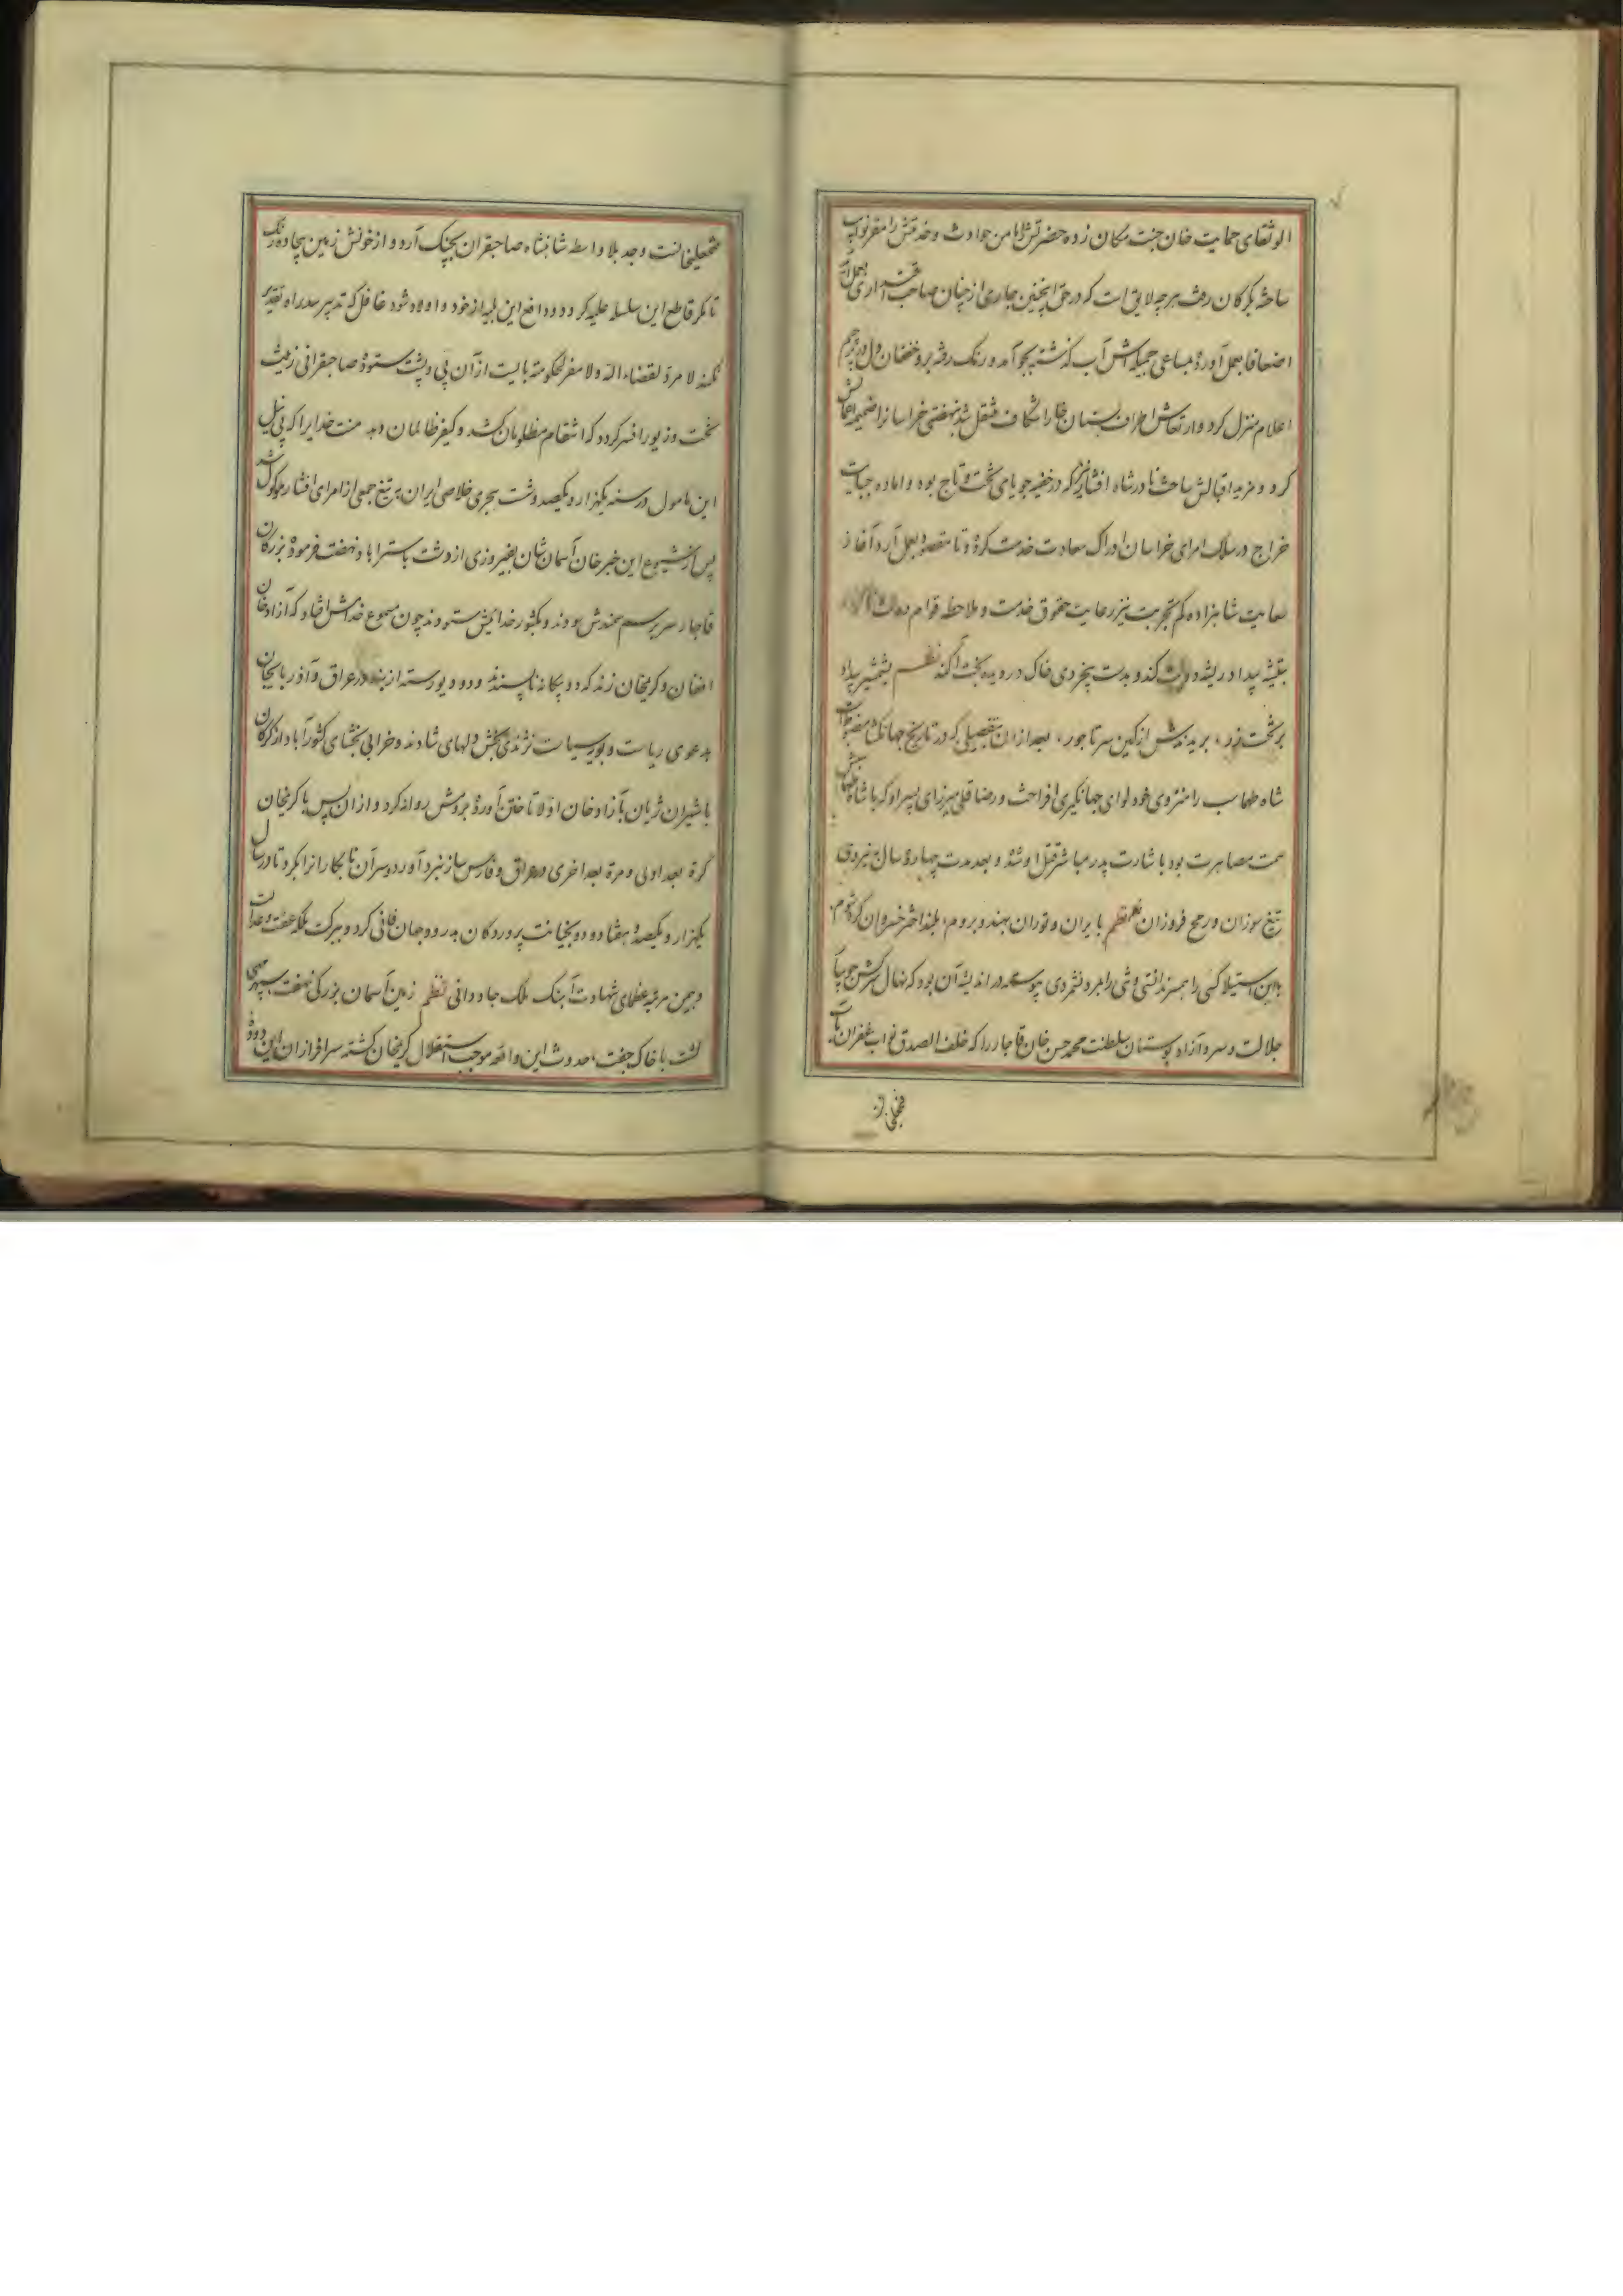 الوثقای حمایت خان جنت مکان زده حضرتش را مامن حوادث و خدمتش را مفر نوایب
ساخته بگرگان رفت هر چه لایق است که در حق اینچنین جاری از چنان صاحب اقتداری بعمل آید
اضعافا بعمل آورده بمساعی جمیله اش آب گذشته بجو آمد و رنگ رفته برو خفقان دل در پرچم
اعلام منزل کرد و ارتعاش اطراف بسنان خارا شکاف منتقل شد بنهضتی خراسانرا ضمیمه
کرد و مزید اقبالش ساخت نادرشاه افشار نیز که در خفیه جویای تخت و تاج بوده و اماده جبایت
خراج در سلک امرای خراسان ادراک سعادت خدمت کرده و تا مقصود بعمل آرد آغاز
سعایت شاهزاده کم تجربت نیز رعایت حقوق خدمت و ملاحظه قوام دولت
بتیشه بیداد ریشه دولت کند و بدست بیخردی خاک در دیده بخت آکند نظم بشمشیر بیداد
بر تخت زر، برید ندش از کین سر تاجور، بعد از آن بتفصیلی که در تاریخ جهانگشا مضبوطست
شاه طهماسب را منزوی و خود لوای جهانگیری افراخت و رضا قلی میرزای پسر او که با شاه
سمت مصاهرت بود با شارت پدر مباشر قتل او شد و بعد مدت چهارده سال بنیروی
تیغ سوزان و رمح فروزان نظم بایران و توران بهند و بروم، بلند اختر خسروان کرد شوم،
باین استیلا کسی را همسر ندانستی و شی را بمرد نشمردی پیوسته در اندیشه آن بود که نهال سرکش جویبار
جلالت و سرو آزاد بوستان سلطنت محمد حسن خان قاجار را که خلف الصدق نواب غفران مآب
فتحعلی
فتحعلیخانست و جد بلا واسطه شاهنشاه صاحبقران بچنگ آرد و از خونش زمین بیجاده رنگ
تا مگر قاطع این سلسله علیه گردد و دافع این بلیه از خود و اولاد شود غافل که تدبیر سد راه تقدیر
نکند لا مرد لقضاء الله و لا مفر لحکومته بایست از آن پی و پشت ستوده صاحبقرانی زینت
تخت و زیور افسر گردد که انتقام مظلومان کشد و کیفر ظالمان دهد منت خدایرا که پی نیل
این مامول در سنه یکهزار و یکصد و شصت هجری خلاصی ایران بر تیغ جمعی از امرای افشار موکول شد
پس از شیوع این خبر خان آسمان شان بفیروزی از دشت باستراباد نهضت فرموده بزرگان
قاجار سر بر سم سمندش سودند و بکشور خدائیش ستودند چون مسموع خدامش افتاد که آزاد خان
افغان و کریمخان زند که دو بیگانه ناپسند و دو دیو رسته از بند در عراق و آذربایجان
بدعوی ریاست و بوی سیاست نژندی بخش دلهای شادند و خرابی بخشای کشور آباد از گرگان
با شیران ژیان بآزاد خان اولا تاختن آورده مردوش روانه کرد و از آن پس با کریمخان
کرة بعد اولی و مرة بعد اخری در عراق و فارس ساز نبرد آورد و سرآن نابکارانرا بگرد تا در سال
یکهزار و یکصد و هفتاد و دو بخیانت پروردگان بدرود جهان فانی کرد و ببرکت ملکه عفت و عدالت
و بیمن مرتبه عظمای شهادت آهنگ ملک جاودانی نظم زمین آسمان بزرگی نهفت، سپهر مهی
گشت با خاک جفت، حدوث این واقعه موجب استقلال کریمخان گشته سرافرازان این دوده